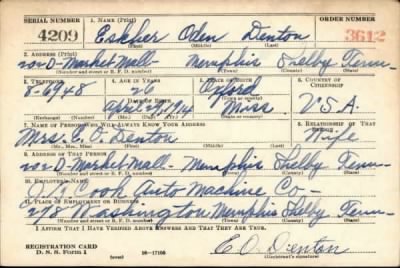 SERIAL NUMBER 1. NAME (Print) ORDER NUMBER
4209 Eskher Oden Denton 3612
(First) (Middle) (Last)
2. ADDRESS (Print)
202 D-Market Mall- Memphis Shelby Tenn-
(Number and street or R. F. D. number) (Town) (County) (State)
3. TELEPHONE 4. AGE IN YEARS 5. PLACE OF BIRTH 6. COUNTRY OF CITIZENSHIP
8-6948 26 Oxford
DATE OF BIRTH (Town or county)
April 1914 Miss U.S.A.
(Exchange) (Number) (Mo.) (Day) (Yr.) (State or country)
7. NAME OF PERSON WHO WILL ALWAYS KNOW YOUR ADDRESS 8. RELATIONSHIP OF THAT PERSON
Mrs. E. O. Denton Wife
(Mr., Mrs., Miss) (First) (Middle) (Last)
9. ADDRESS OF THAT PERSON
202-D-Market Mall- Memphis Shelby Tenn-
(Number and street or R. F. D. number) (Town) (County) (State)
10. EMPLOYER'S NAME
Cook Auto Machine Co-
11. PLACE OF EMPLOYMENT OR BUSINESS
298 Washington Memphis Shelby Tenn-
(Number and street or R. F. D. number) (Town) (County) (State)
I AFFIRM THAT I HAVE VERIFIED ABOVE ANSWERS AND THAT THEY ARE TRUE.
REGISTRATION CARD
D. S. S. Form 1 (over) 16-17105 E. O. Denton
(Registrant's signature)